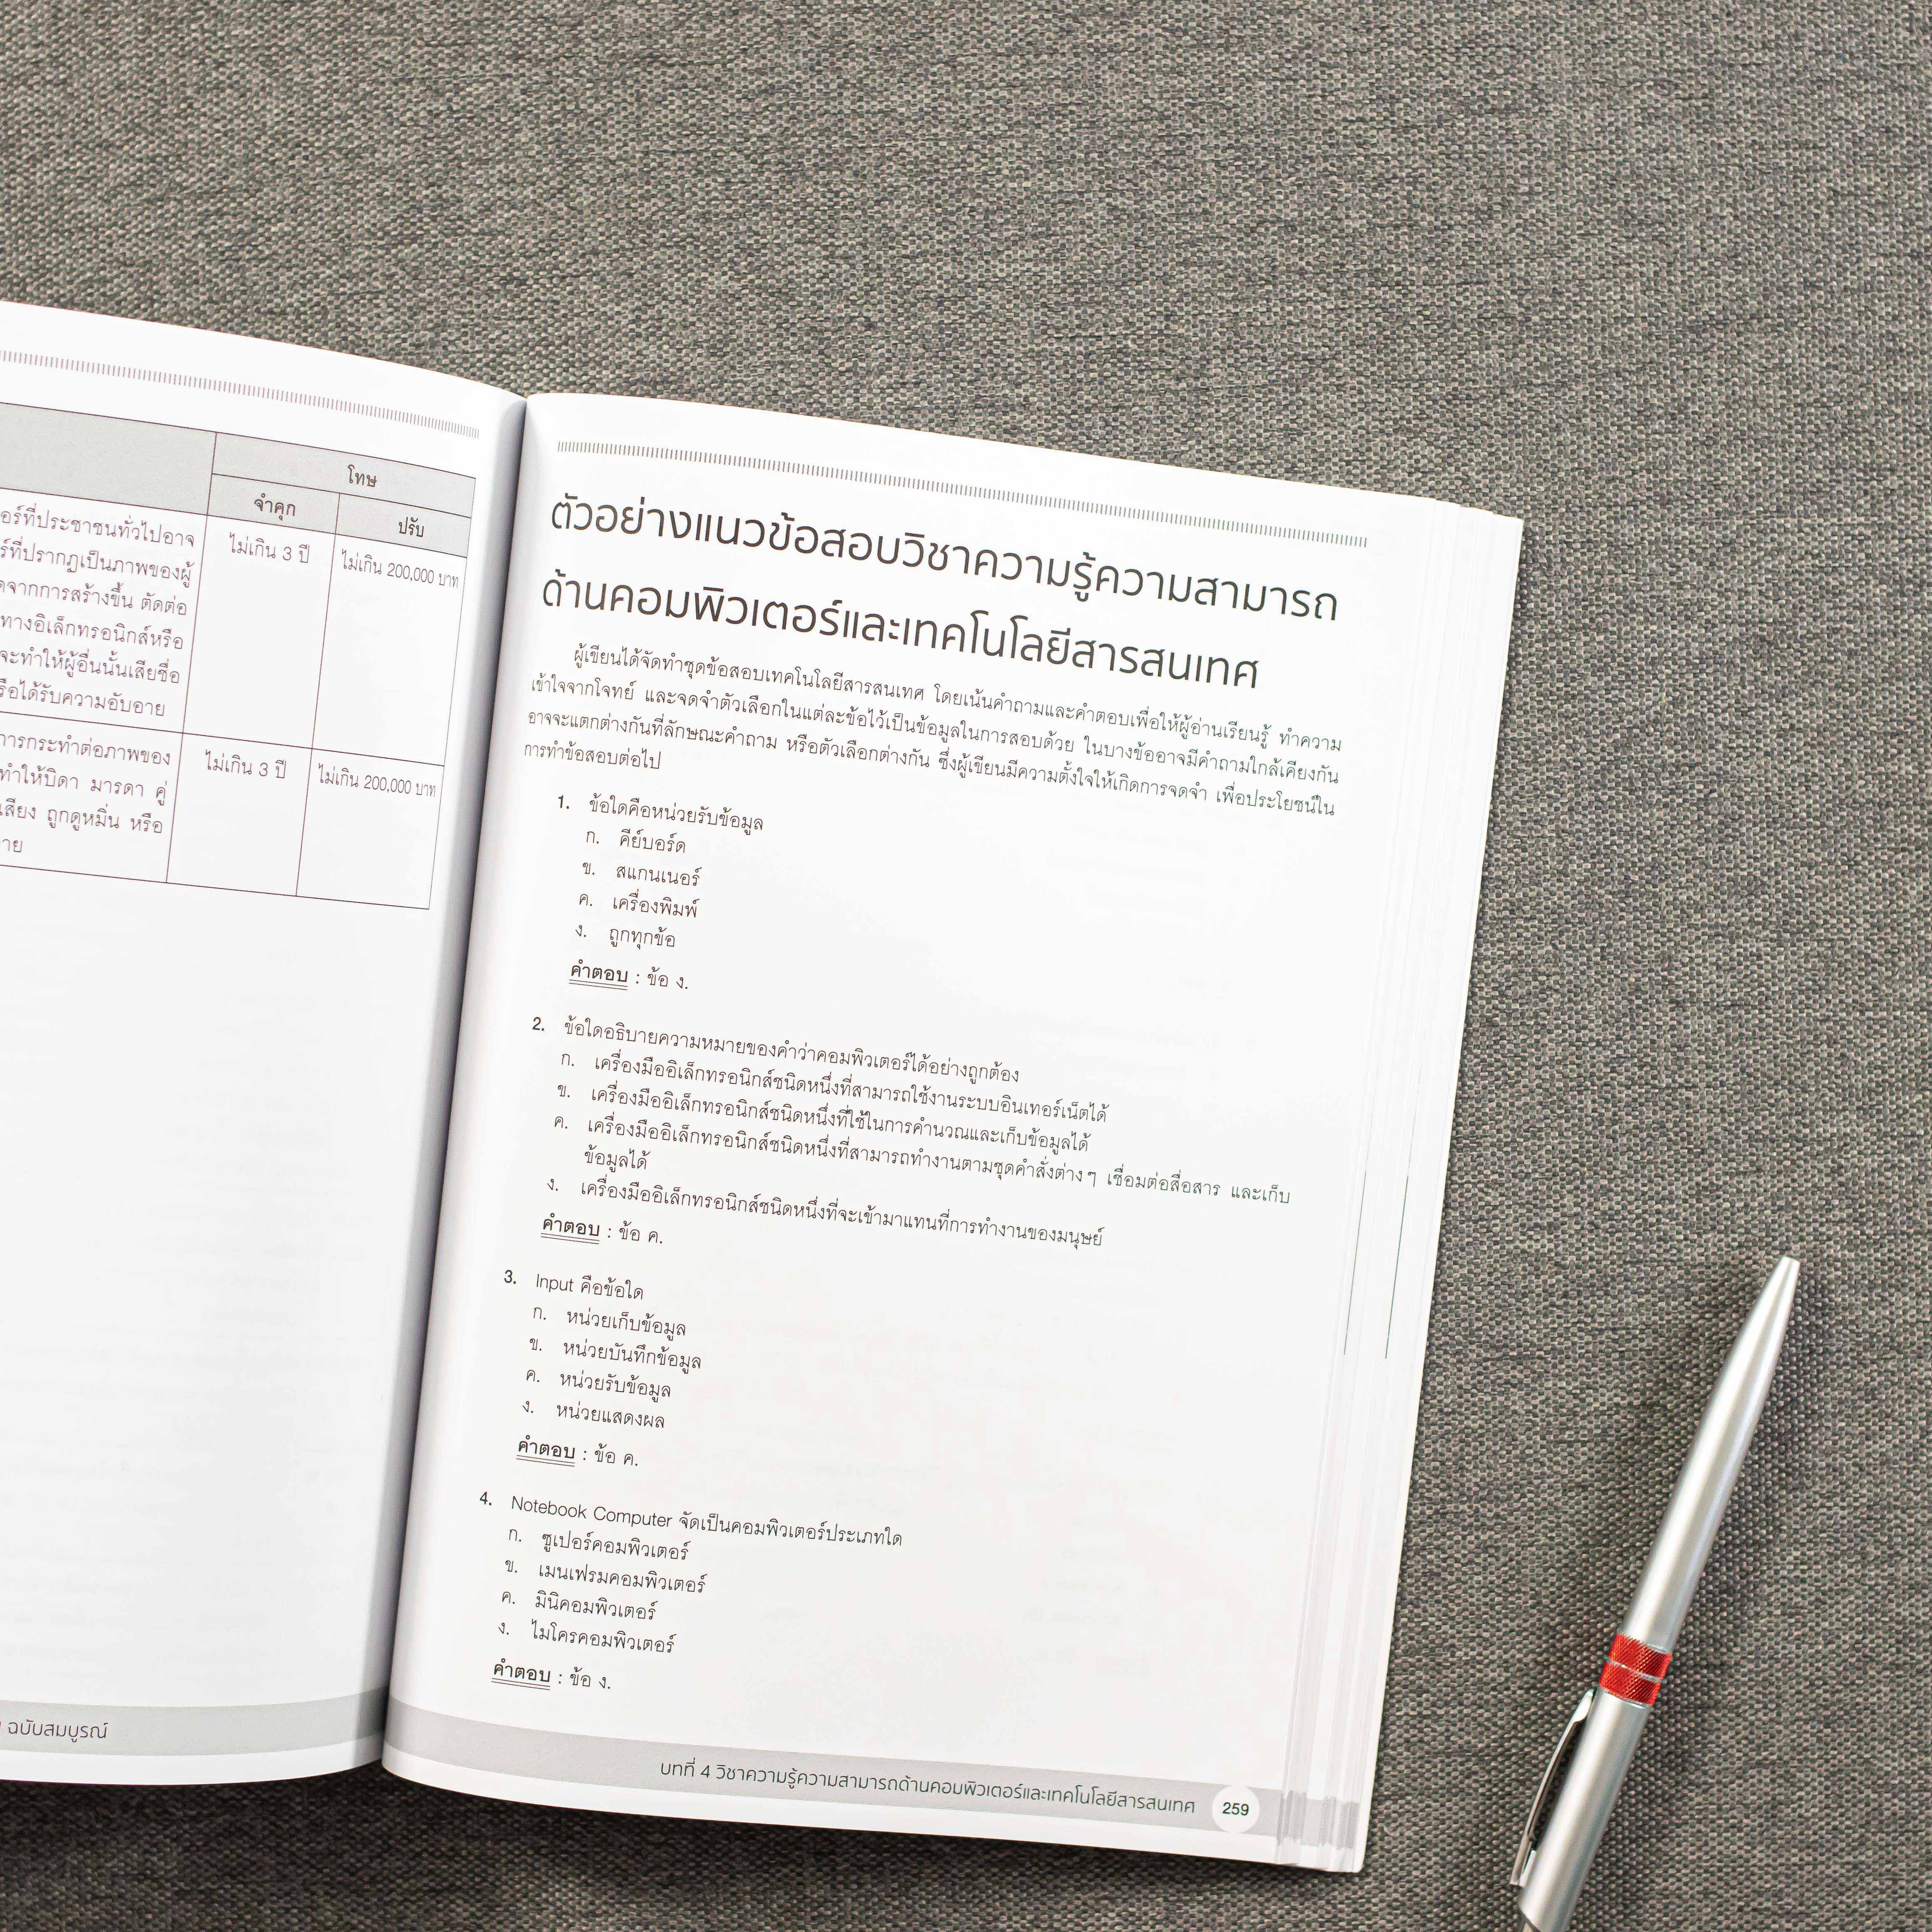 โทษ
จำคุก
ปรับ
อร์ที่ประชาชนทั่วไปอาจ
ไม่เกิน 3 ปี
ไม่เกิน 200,000 บาท
ร์ที่ปรากฏเป็นภาพของผู้
ดจากการสร้างขึ้น ตัดต่อ
ทางอิเล็กทรอนิกส์หรือ
จะทำให้ผู้อื่นนั้นเสียชื่อ
รือได้รับความอับอาย
การกระทำต่อภาพของ
ไม่เกิน 3 ปี
ไม่เกิน 200,000 บาท
ทำให้บิดา มารดา คู่
เสียง ถูกดูหมิ่น หรือ
าย
ฉบับสมบูรณ์
ตัวอย่างแนวข้อสอบวิชาความรู้ความสามารถ
ด้านคอมพิวเตอร์และเทคโนโลยีสารสนเทศ
ผู้เขียนได้จัดทำชุดข้อสอบเทคโนโลยีสารสนเทศ โดยเน้นคำถามและคำตอบเพื่อให้ผู้อ่านเรียนรู้ ทำความ
เข้าใจจากโจทย์ และจดจำตัวเลือกในแต่ละข้อไว้เป็นข้อมูลในการสอบด้วย ในบางข้ออาจมีคำถามใกล้เคียงกัน
อาจจะแตกต่างกันที่ลักษณะคำถาม หรือตัวเลือกต่างกัน ซึ่งผู้เขียนมีความตั้งใจให้เกิดการจดจำ เพื่อประโยชน์ใน
การทำข้อสอบต่อไป
1. ข้อใดคือหน่วยรับข้อมูล
ก. คีย์บอร์ด
ข. สแกนเนอร์
ค. เครื่องพิมพ์
ง. ถูกทุกข้อ
คำตอบ : ข้อ ง.
2. ข้อใดอธิบายความหมายของคำว่าคอมพิวเตอร์ได้อย่างถูกต้อง
ก. เครื่องมืออิเล็กทรอนิกส์ชนิดหนึ่งที่สามารถใช้งานระบบอินเทอร์เน็ตได้
ข. เครื่องมืออิเล็กทรอนิกส์ชนิดหนึ่งที่ใช้ในการคำนวณและเก็บข้อมูลได้
ค. เครื่องมืออิเล็กทรอนิกส์ชนิดหนึ่งที่สามารถทำงานตามชุดคำสั่งต่างๆ เชื่อมต่อสื่อสาร และเก็บ
ข้อมูลได้
ง. เครื่องมืออิเล็กทรอนิกส์ชนิดหนึ่งที่จะเข้ามาแทนที่การทำงานของมนุษย์
คำตอบ : ข้อ ค.
3. Input คือข้อใด
ก. หน่วยเก็บข้อมูล
ข. หน่วยบันทึกข้อมูล
ค. หน่วยรับข้อมูล
ง. หน่วยแสดงผล
คำตอบ : ข้อ ค.
4. Notebook Computer จัดเป็นคอมพิวเตอร์ประเภทใด
ก. ซูเปอร์คอมพิวเตอร์
ข. เมนเฟรมคอมพิวเตอร์
ค. มินิคอมพิวเตอร์
ง. ไมโครคอมพิวเตอร์
คำตอบ : ข้อ ง.
บทที่ 4 วิชาความรู้ความสามารถด้านคอมพิวเตอร์และเทคโนโลยีสารสนเทศ 259